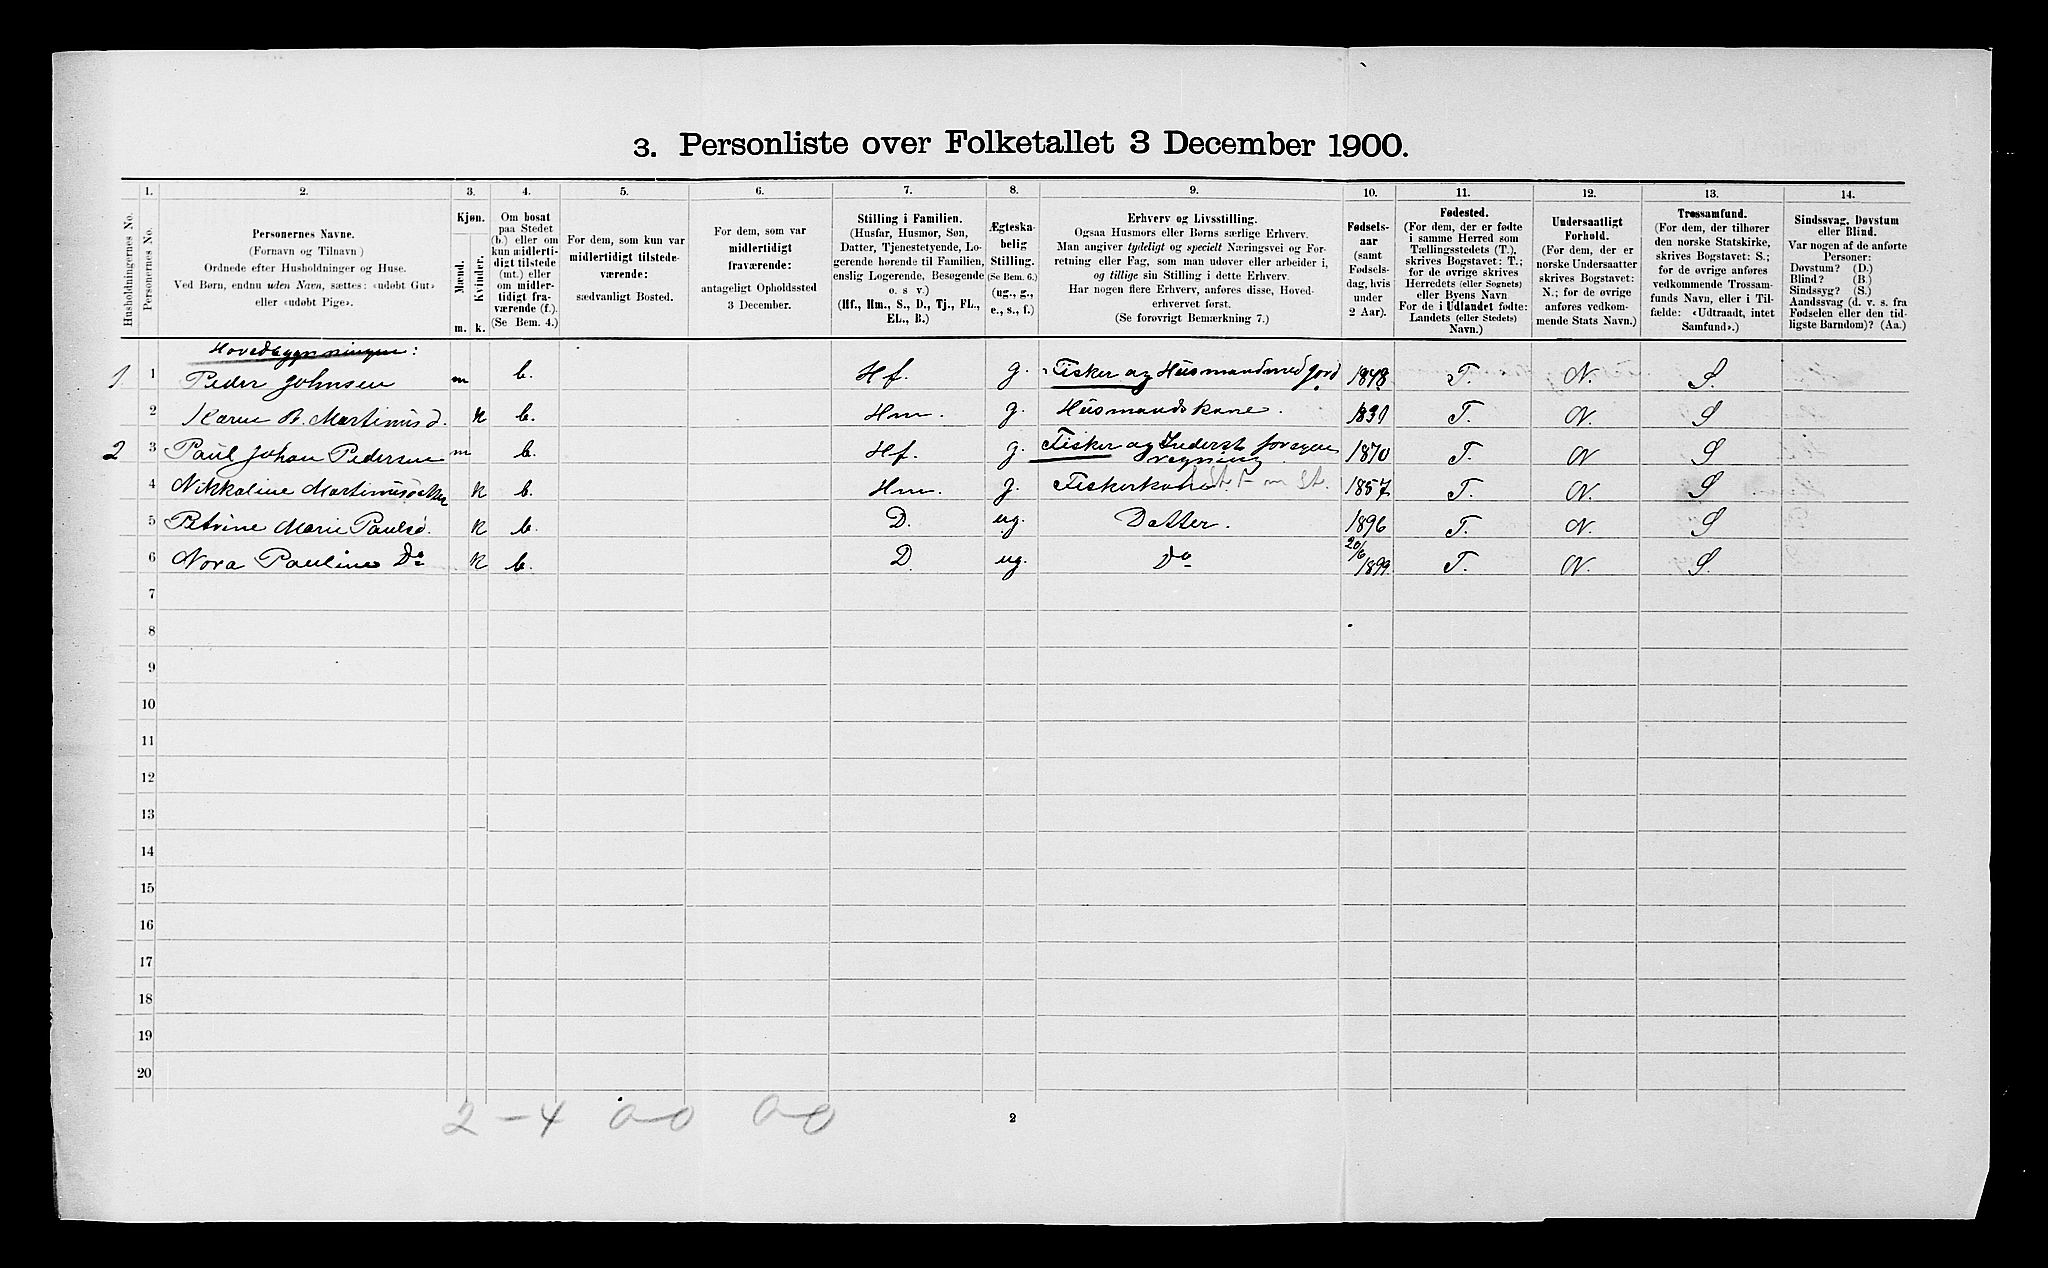 3. Personliste over Folketallet 3 December 1900.
1. 2. 3. 4. 5. 6. 7. 8. 9. 10. 11. 12. 13. 14.
Husholdningernes No.
Personernes No.
Personernes Navne.
(Fornavn og Tilnavn)
Ordnede efter Husholdninger og Huse.
Ved Børn, endnu uden Navn, sættes: «udøbt Gut»
eller «udøbt Pige».
Kjøn.
Mænd.
Kvinder.
m. k.
Om bosat
paa Stedet
(b.) eller om
kun midlerti-
digt tilstede
(mt.) eller
om midler-
tidigt fra-
værende (f.).
(Se Bem. 4.)
For dem, som kun var
midlertidigt tilstede-
værende:
sædvanligt Bosted.
For dem, som var
midlertidigt
fraværende:
antageligt Opholdssted
3 December.
Stilling i Familien.
(Husfar, Husmor, Søn,
Datter, Tjenestetyende, Lo-
gerende hørende til Familien,
enslig Logerende, Besøgende
o. s v.)
(Hf., Hm., S., D., Tj., FL.,
EL., B.)
Ægteska-
belig
Stilling.
(Se Bem. 6.)
(ug., g.,
e., s., f.)
Erhverv og Livsstilling.
Ogsaa Husmors eller Børns særlige Erhverv.
Man angiver tydeligt og specielt Næringsvei og For-
retning eller Fag, som man udøver eller arbeider i,
og tillige sin Stilling i dette Erhverv.
Har nogen flere Erhverv, anføres disse, Hoved-
erhvervet først.
(Se forøvrigt Bemærkning 7.)
Fødsels-
aar
(samt
Fødsels-
dag, hvis
under
2 Aar).
Fødested.
(For dem, der er fødte
i samme Herred som
Tællingsstedets (T.),
skrives Bogstavet: T.;
for de øvrige skrives
Herredets (eller Sognets)
eller Byens Navn
For de i Udlandet fødte:
Landets (eller Stedets)
Navn.)
Undersaatligt
Forhold.
(For dem, der er
norske Undersaatter
skrives Bogstavet:
N.; for de øvrige
anføres vedkom-
mende Stats Navn.)
Trossamfund.
(For dem, der tilhører
den norske Statskirke,
skrives Bogstavet: S.;
for de øvrige anføres
vedkommende Trossam-
funds Navn, eller i Til-
fælde: «Udtraadt, intet
Samfund».)
Sindssvag, Døvstum
eller Blind.
Var nogen af de anførte
Personer:
Døvstum? (D.)
Blind? (B)
Sindssyg? (S.)
Aandssvag (d. v. s. fra
Fødselen eller den tid-
ligste Barndom)? (Aa.)
Hovedbygningen:
1 1 Peder Johnsen m b. Hf. g. Fisker og Husmand med jord 1848 T. N. S.
2 Karen B. Martinusd. k b. Hm. g. Husmandskone. 1831 T. N. S
2 3 Paul Johan Pedersen m b. Hf. g. Fisker og Inderst for egen
regning 1870 T. N S
4 Nikkoline Martinusdatter k b. Hm. g. Fiskerkone 1857 T. N. S
5 Petrine Marie Paulsd. k b. D. ug. Datter. 1896 T. N. S
6 Nora Pauline Do k b. D. ug. Do 20/6 1899. T. N. S.
7
8
9
10
11
12
13
14
15
16
17
18
19
20
2 – 4 0–0 0–0
2